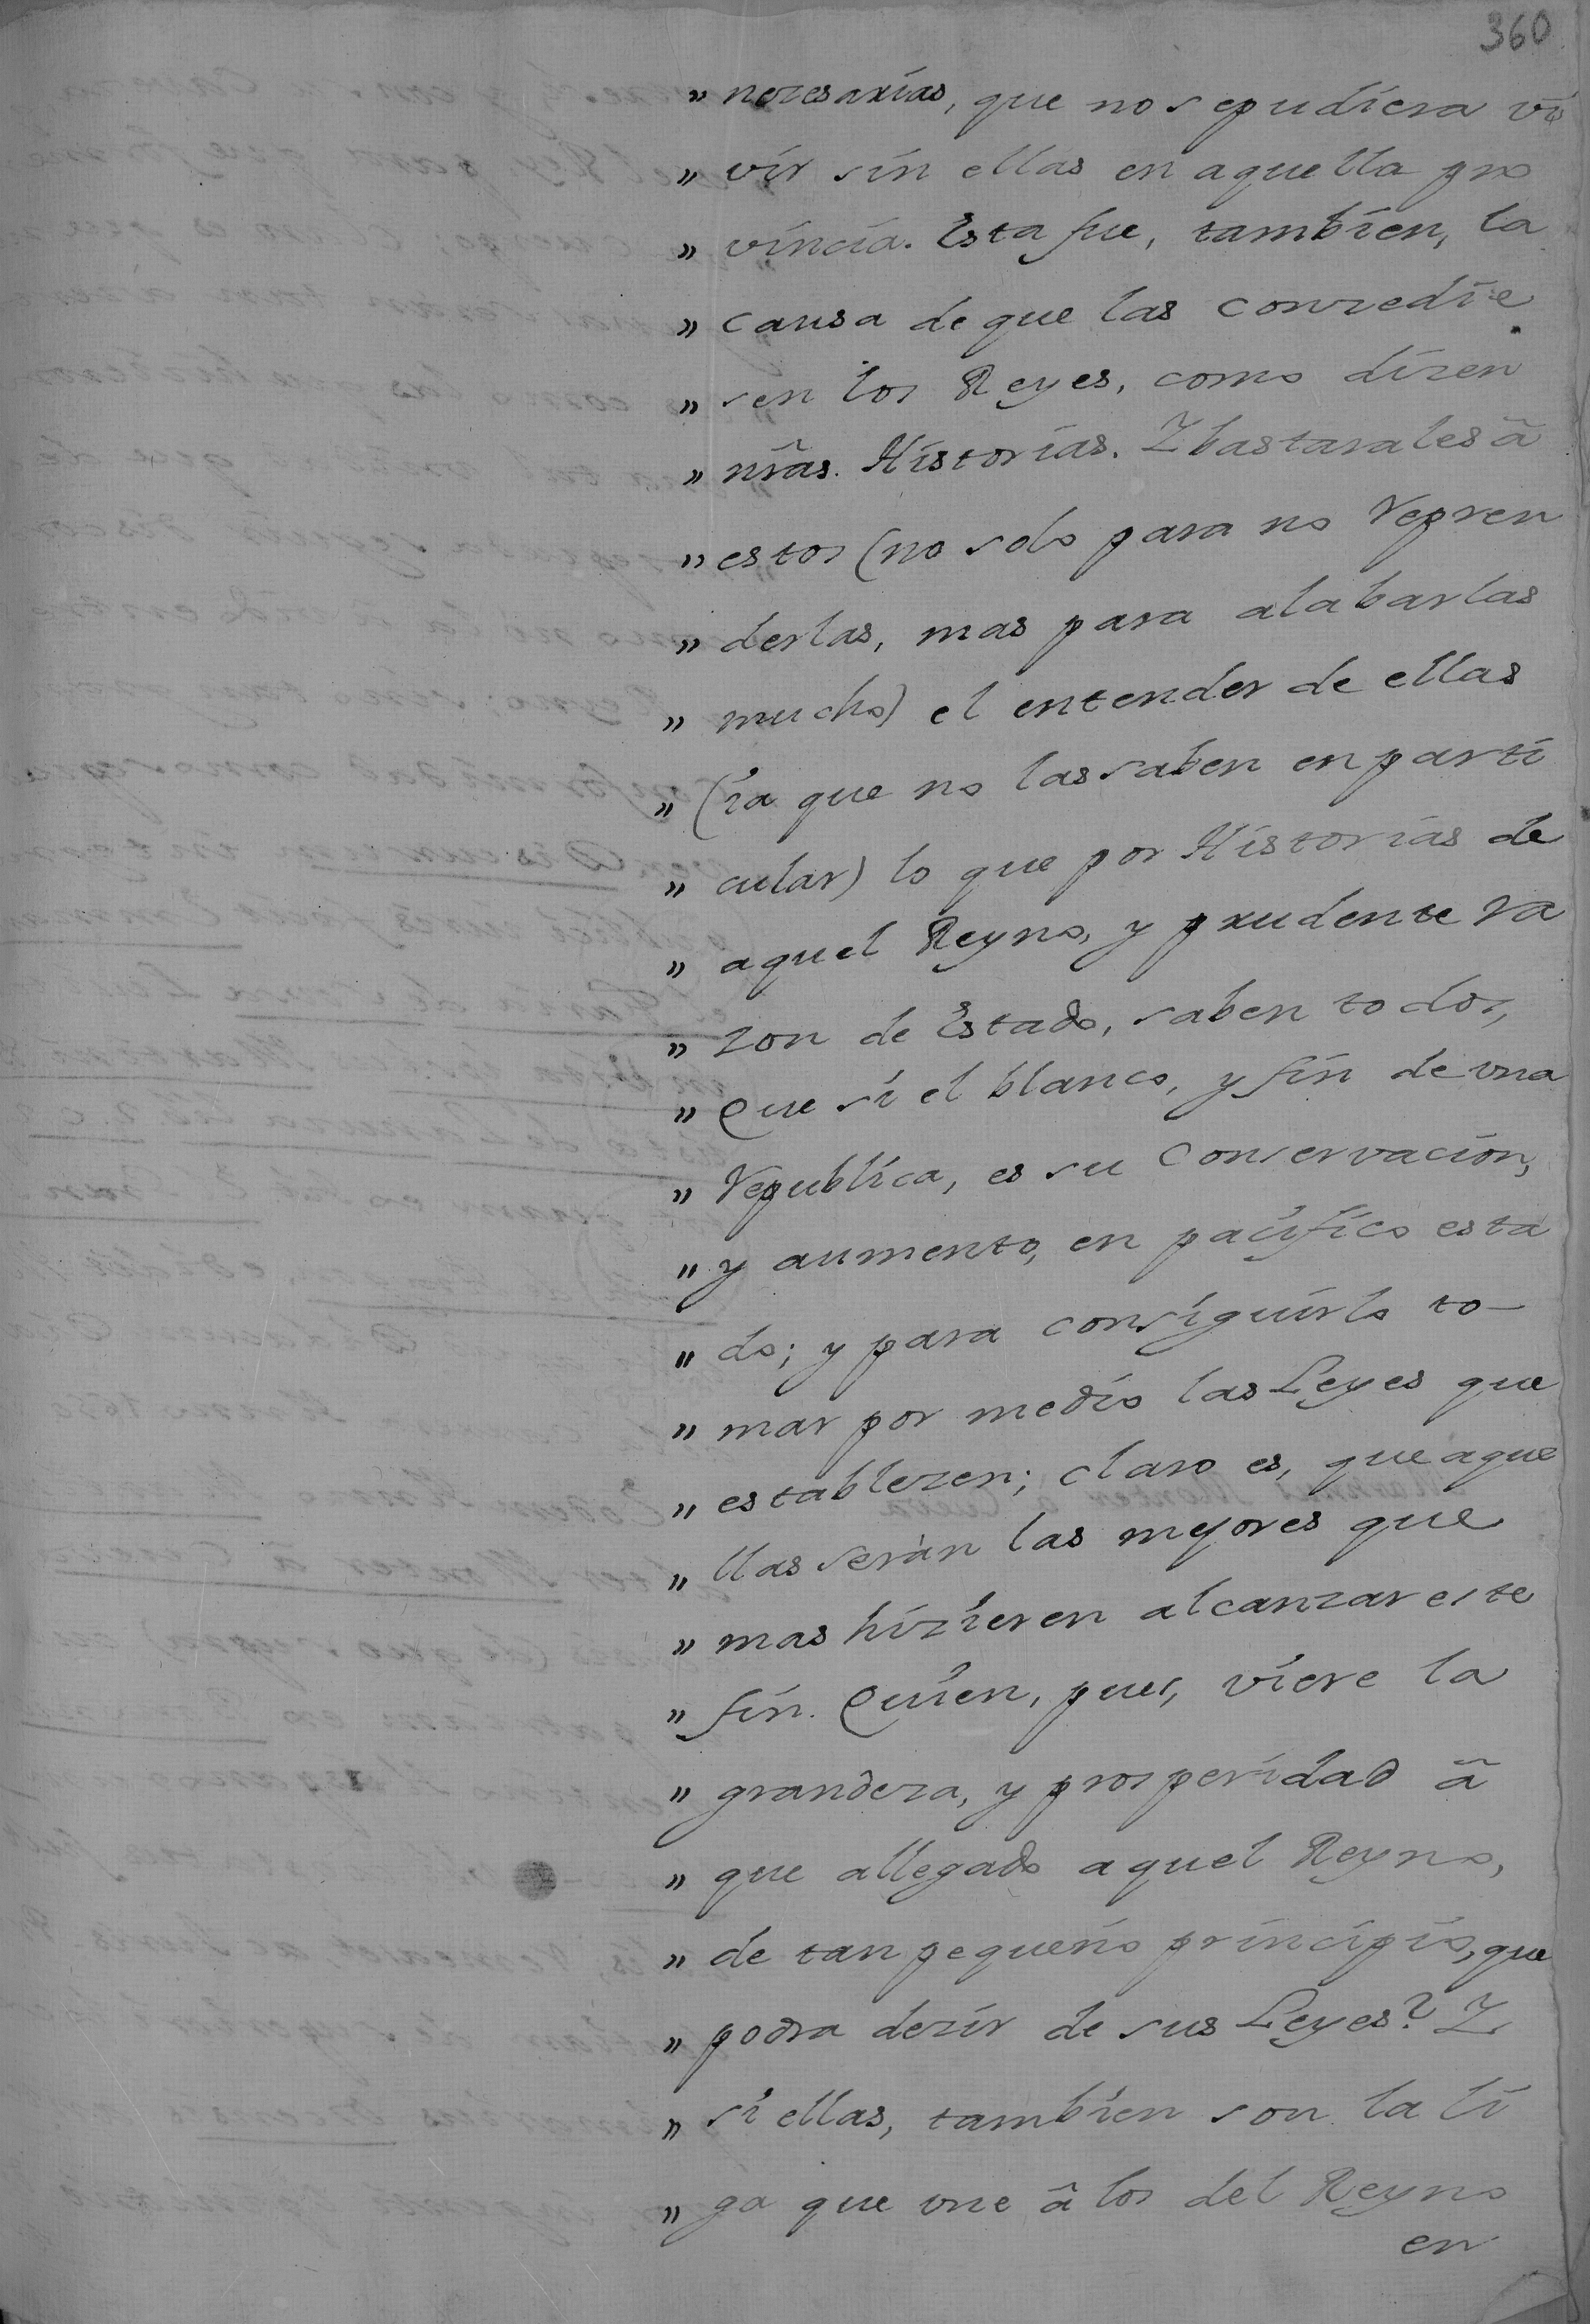 360
" nezesarias, que no se pudiera vi
" vir sin ellas en aquella pro
" vincia. Esta fue, tambien, la
" causa de que las conzedie
" sen los Reyes, como dizen
" nr̃as. Historias. Y bastarales â
" estos (no solo para no repren
" derlas, mas para alabarlas
" mucho) el entender de ellas
" (ia que no las saben en parti
" cular) lo que por Historias de
" aquel Reyno, y prudente ra
" zon de Estado, saben todos,
" Que si el blanco, y fin de vna
" republica, es su conservacion,
" y aumento, en pacifico esta
" do; y para consiguirlo to-
" mar por medio las Leyes que
" establezen; claro es, que aque
" llas seràn las mejores que
" mas hizieren alcanzar este
" fin. Quien, pues, viere la
" grandeza, y prosperidad â
" que allegado aquel Reyno,
" de tan pequeño principio, que
" podra dezir de sus Leyes? Y
" si ellas, tambien son la li
" ga que vne â los del Reyno
en